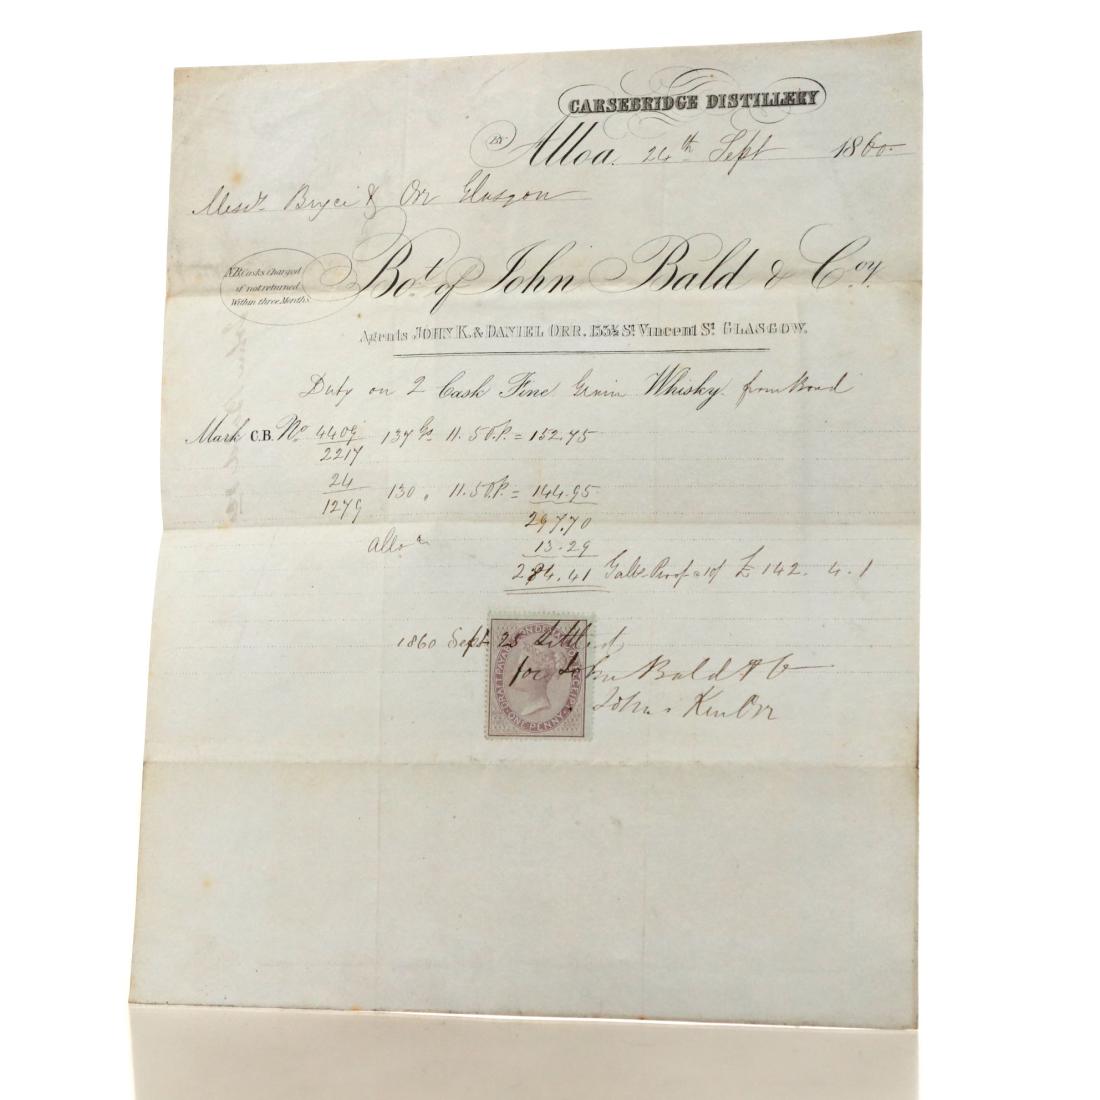 CARSEBRIDGE DISTILLERY
BY Alloa. 24th Sept 1860
Messrs. Bryce & Orr Glasgow
N.B. Casks Charged
if not returned
Within three Months.
Bot. of John Bald & Coy.
Agents JOHN K. & DANIEL ORR. 153½ St. Vincent St. GLASGOW.
Duty on 2 Cask Fine Grain Whisky from Bond
Mark C.B. No. 4409 137 Gs 11.5 O.P. = 152.75
2217
24 130 " 11.5 O.P. = 144.95
1279
297.70
Alloce 13.29
284.41 Galls Proof @ 10/ £142. 4. 1
1860 Sept 25 Settled,
for John Bald & Co
John Ker Orr
DRAFT PAYABLE ON DEMAND OR RECEIPT
ONE PENNY